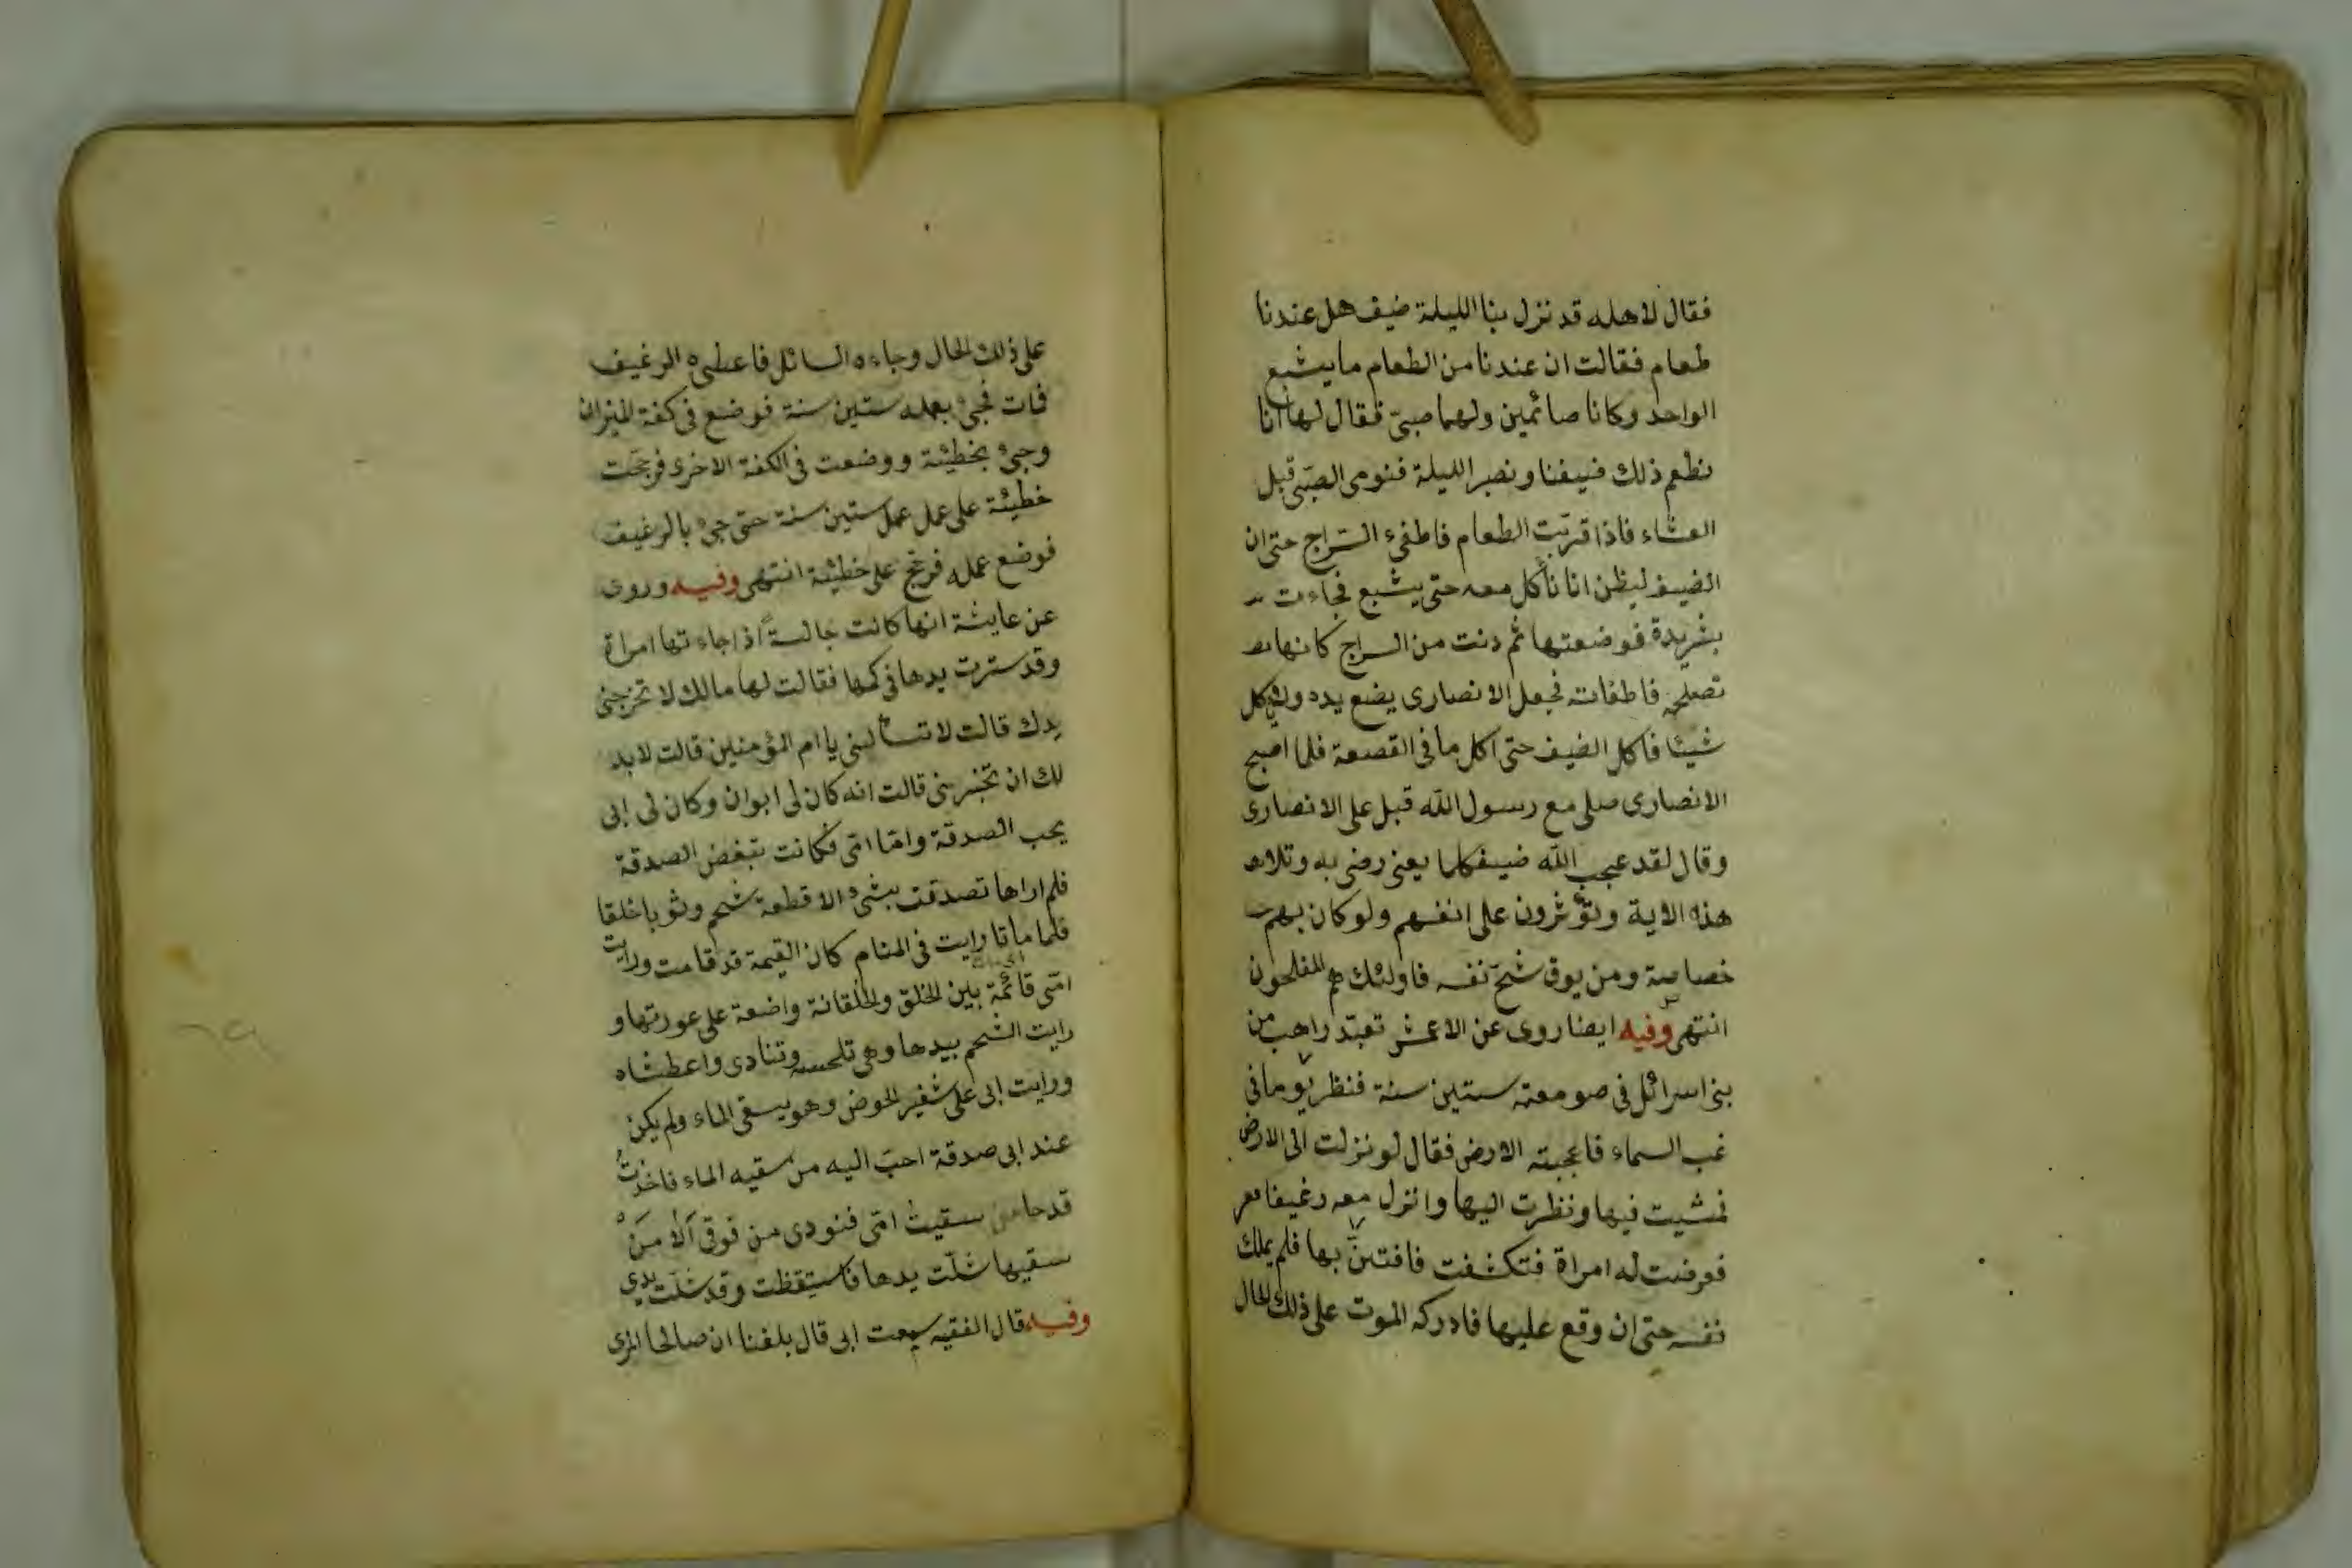 فقال لاهله قد نزل بنا الليلة ضيف هل عندنا
طعام فقالت ان عندنا من الطعام ما يشبع
الواحد وكانا صائمين ولهما صبيّ فقال لها انا
نطعم ذلك ضيفنا ونصبر الليلة فنومى الصبّى قبل
العشاء فاذا قربّت الطعام فاطفىء السّراج حتى ان
الضيف ليظن انا نأكل معه حتى يشبع فجاءت
بثريدة فوضعتها ثم دنت من السراج كانها
تصلحه فاطفاته فجعل الانصارى يضع يده ولا ياكل
شيئا فاكل الضيف حتى اكل ما فى القصعة فلما اصبح
الانصارى صلى مع رسول الله قبل على الانصارى
وقال لقد عجب الله ضيفكما يعنى رضى به وتلا
هذه الاية ويؤثرون على انفسهم ولو كان بهم
خصاصة ومن يوق شحّ نفسه فاولئك هم المفلحون
انتهى وفيه ايضا روى عن الاعمش تعبّد راهب من
بنى اسرائل فى صومعته ستين سنة فنظر يوما فى
غب السماء فاعجبته الارض فقال لو نزلت الى الارض
فمشيت فيها ونظرت اليها وانزل معه رغيفا
فعرضت له امراة فتكشفت فافتتنّ بها فلم يملك
نفسه حتى ان وقع عليها فادركه الموت على ذلك الحال
على ذلك الحال وجاءه السائل فاعطىه الرغيف
فمات فجئ بعمله ستين سنة فوضع فى كفة الميزان
وجئ بخطيئة ووضعت فى الكفة الاخرى فرجحت
خطيئة على عمل عمل ستين سنة حتى جئ بالرغيف
فوضع عمله فرجح على خطيئة انتهى وفيه وروى
عن عايشة انها كانت جالسةً اذا جاءتها امراة
وقد سترت يدها فى كمها فقالت لها مالك لا تخرجنى
يدك قالت لا تسألينى يا ام المؤمنين قالت لابد
لك ان تخبرينى قالت انه كان لى ابوان وكان لى ابى
يحب الصدقة وامّا امّى فكانت تبغض الصدقة
فلم اراها تصدقت بشئ الا قطعة شحم وثوبا خلقا
فلما ماتا رايت فى المنام كان القيمة قد قامت ورايت
امّى قائمة بين الخلق والخلقانة واضعة على عورتها و
رايت الشحم بيدها وهى تلحسه وتنادى واعطشاه
ورايت ابى على شفير الحوض وهو يسقى الماء ولم يكن
عند ابى صدقة احبّ اليه من سقيه الماء فاخذتُ
قدحا سقيتُ امّى فنودى من فوقى اَلا مَنْ
سقيها شلّت يدها فاستيقظت وقد شلّت يدى
وفيه قال الفقيه سمعت ابى قال بلغنا ان صالحا المرى